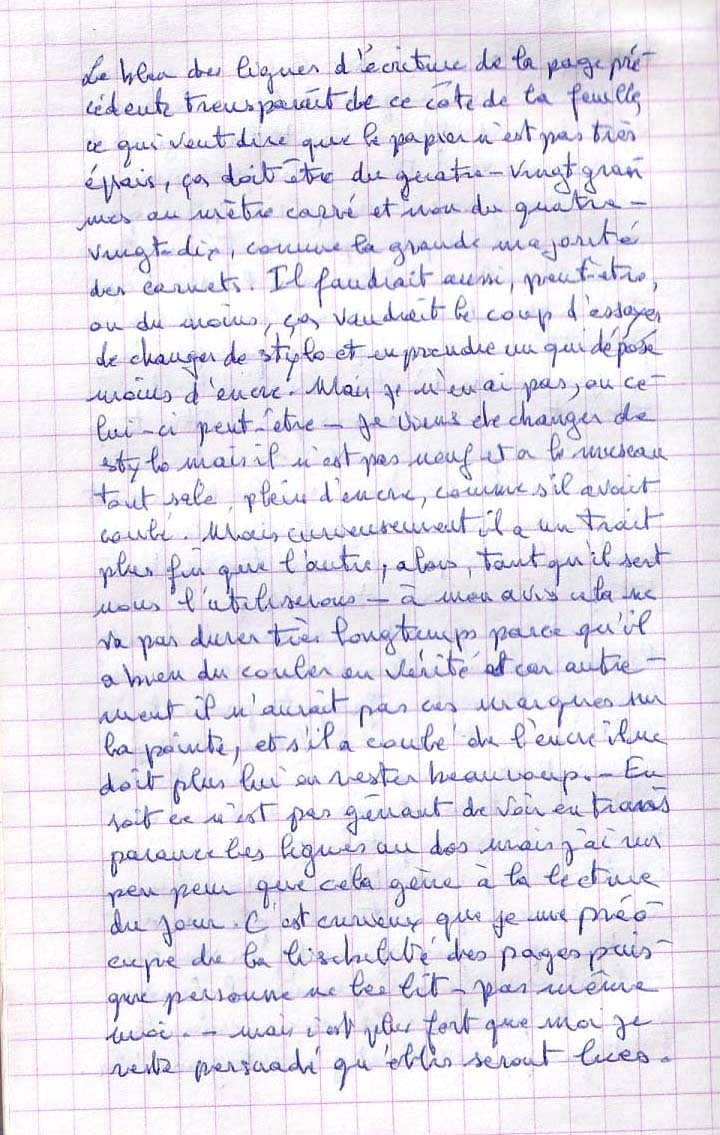 Le bleu des lignes d'écriture de la page pré-
cédente transparaît de ce côté de la feuille,
ce qui veut dire que le papier n'est pas très
épais, ça doit être du quatre-vingt gram
mes au mètre carré et non du quatre-
vingt-dix, comme la grande majorité
des carnets. Il faudrait aussi, peut-être,
ou du moins, ça vaudrait le coup d'essayer
de changer de stylo et en prendre un qui dépose
moins d'encre. Mais je n'en ai pas, ou ce-
lui-ci peut-être - je viens de changer de
stylo mais il n'est pas neuf et a le museau
tout sale, plein d'encre, comme s'il avait
coulé. Mais curieusement il a un trait
plus fin que l'autre, alors, tant qu'il sert
nous l'utiliserons - à mon avis cela ne
va pas durer très longtemps parce qu'il
a bien du couler en vérité car autre-
ment il n'aurait pas ces marques sur
la pointe, et s'il a coulé de l'encre il ne
doit plus lui en rester beaucoup. - En
soit ce n'est pas gênant de voir en trans
parance les lignes au dos mais j'ai un
peu peur que cela gêne à la lecture
du jour. C'est curieux que je me préo
cupe de la lisibilité des pages puis-
que personne ne les lit - pas même
moi. - mais c'est plus fort que moi je
reste persuadé qu'elles seront lues.